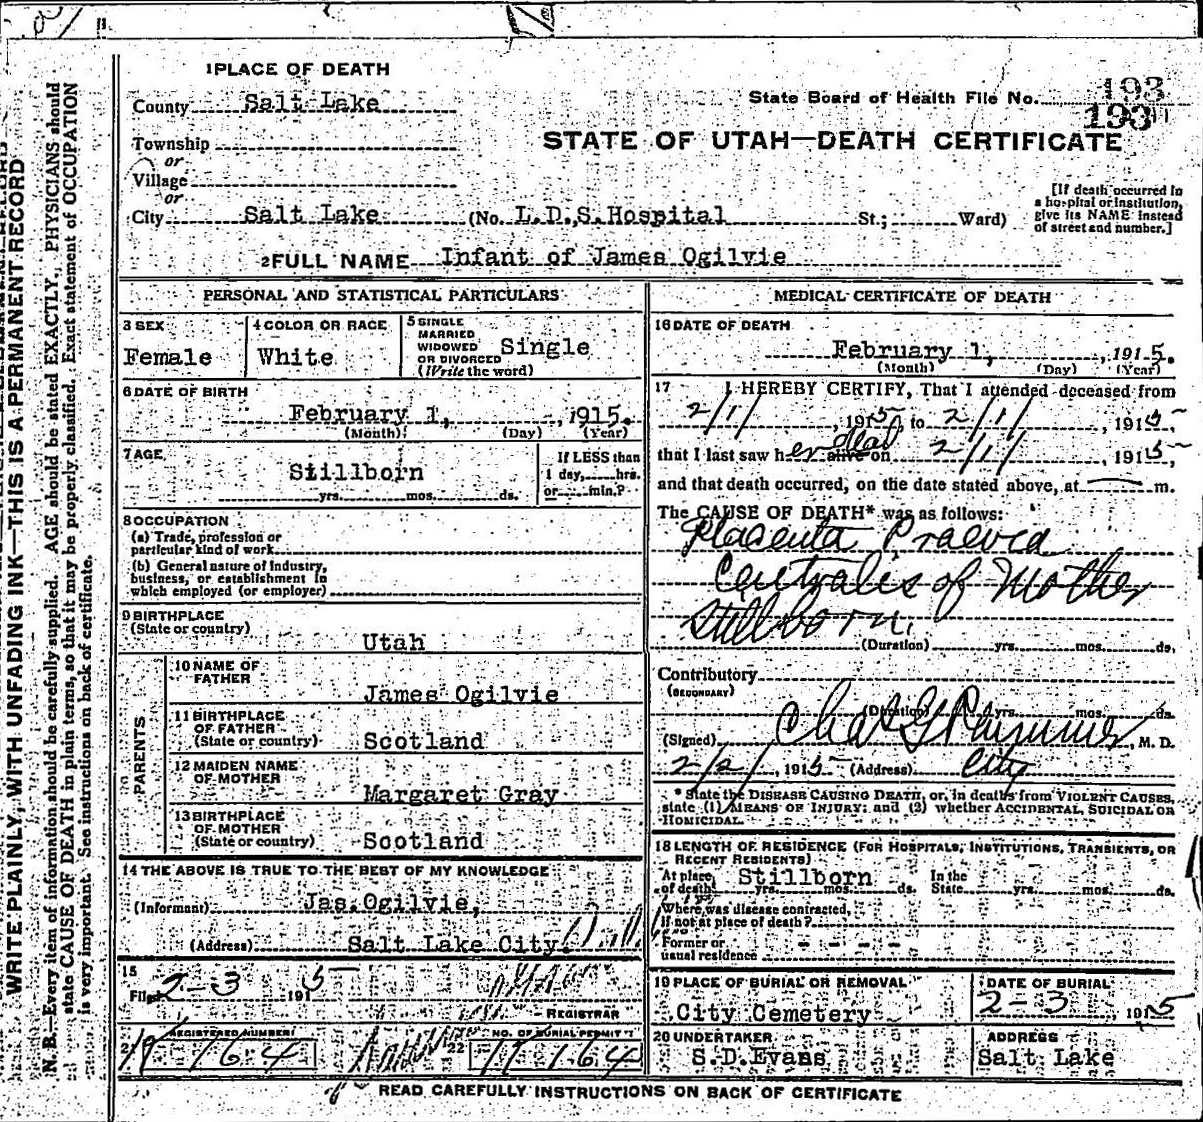 1 PLACE OF DEATH
County Salt Lake
State Board of Health File No. 193
193
Township
STATE OF UTAH—DEATH CERTIFICATE
or
Village
or
City Salt Lake (No. L.D.S. Hospital St.; Ward)
[If death occurred in
a hospital or institution,
give its NAME instead
of street and number.]
2 FULL NAME Infant of James Ogilvie
PERSONAL AND STATISTICAL PARTICULARS
3 SEX
Female
4 COLOR OR RACE
White
5 SINGLE
MARRIED
WIDOWED
OR DIVORCED
(Write the word)
Single
6 DATE OF BIRTH
February 1, , 1915.
(Month) (Day) (Year)
7 AGE
Stillborn
yrs. mos. ds.
If LESS than
1 day, hrs.
or min.?
8 OCCUPATION
(a) Trade, profession or
particular kind of work
(b) General nature of industry,
business, or establishment in
which employed (or employer)
9 BIRTHPLACE
(State or country)
Utah
PARENTS
10 NAME OF
FATHER
James Ogilvie
11 BIRTHPLACE
OF FATHER
(State or country)
Scotland
12 MAIDEN NAME
OF MOTHER
Margaret Gray
13 BIRTHPLACE
OF MOTHER
(State or country)
Scotland
14 THE ABOVE IS TRUE TO THE BEST OF MY KNOWLEDGE
(Informant) Jas. Ogilvie,
(Address) Salt Lake City.
15
Filed 2-3 1915
REGISTRAR
21 REGISTERED NUMBER
164
22 NO. OF BURIAL PERMIT
164
MEDICAL CERTIFICATE OF DEATH
16 DATE OF DEATH
February 1, , 1915.
(Month) (Day) (Year)
17 I HEREBY CERTIFY, That I attended deceased from
2/1/ , 1915 to 2/1/ , 1915
that I last saw her dead alive on 2/1/ , 1915
and that death occurred, on the date stated above, at — m.
The CAUSE OF DEATH* was as follows:
Placenta Praevia
Centralis of Mother
Stillborn.
(Duration) yrs. mos. ds.
Contributory
(SECONDARY)
(Duration) yrs. mos. ds.
(Signed) Chas G Plummer, M. D.
2/2/ , 1915 (Address) City
* State the DISEASE CAUSING DEATH, or, in deaths from VIOLENT CAUSES,
state (1) MEANS OF INJURY; and (2) whether ACCIDENTAL, SUICIDAL OR
HOMICIDAL.
18 LENGTH OF RESIDENCE (FOR HOSPITALS, INSTITUTIONS, TRANSIENTS, OR
RECENT RESIDENTS)
At place
of death Stillborn yrs. mos. ds.
In the
State yrs. mos. ds.
Where was disease contracted,
if not at place of death?
Former or
usual residence
19 PLACE OF BURIAL OR REMOVAL
City Cemetery
DATE OF BURIAL
2-3 , 1915
20 UNDERTAKER
S.D.Evans
ADDRESS
Salt Lake
READ CAREFULLY INSTRUCTIONS ON BACK OF CERTIFICATE
WRITE PLAINLY, WITH UNFADING INK—THIS IS A PERMANENT RECORD
N. B.—Every item of information should be carefully supplied. AGE should be stated EXACTLY. PHYSICIANS should
state CAUSE OF DEATH in plain terms, so that it may be properly classified. Exact statement of OCCUPATION
is very important. See instructions on back of certificate.